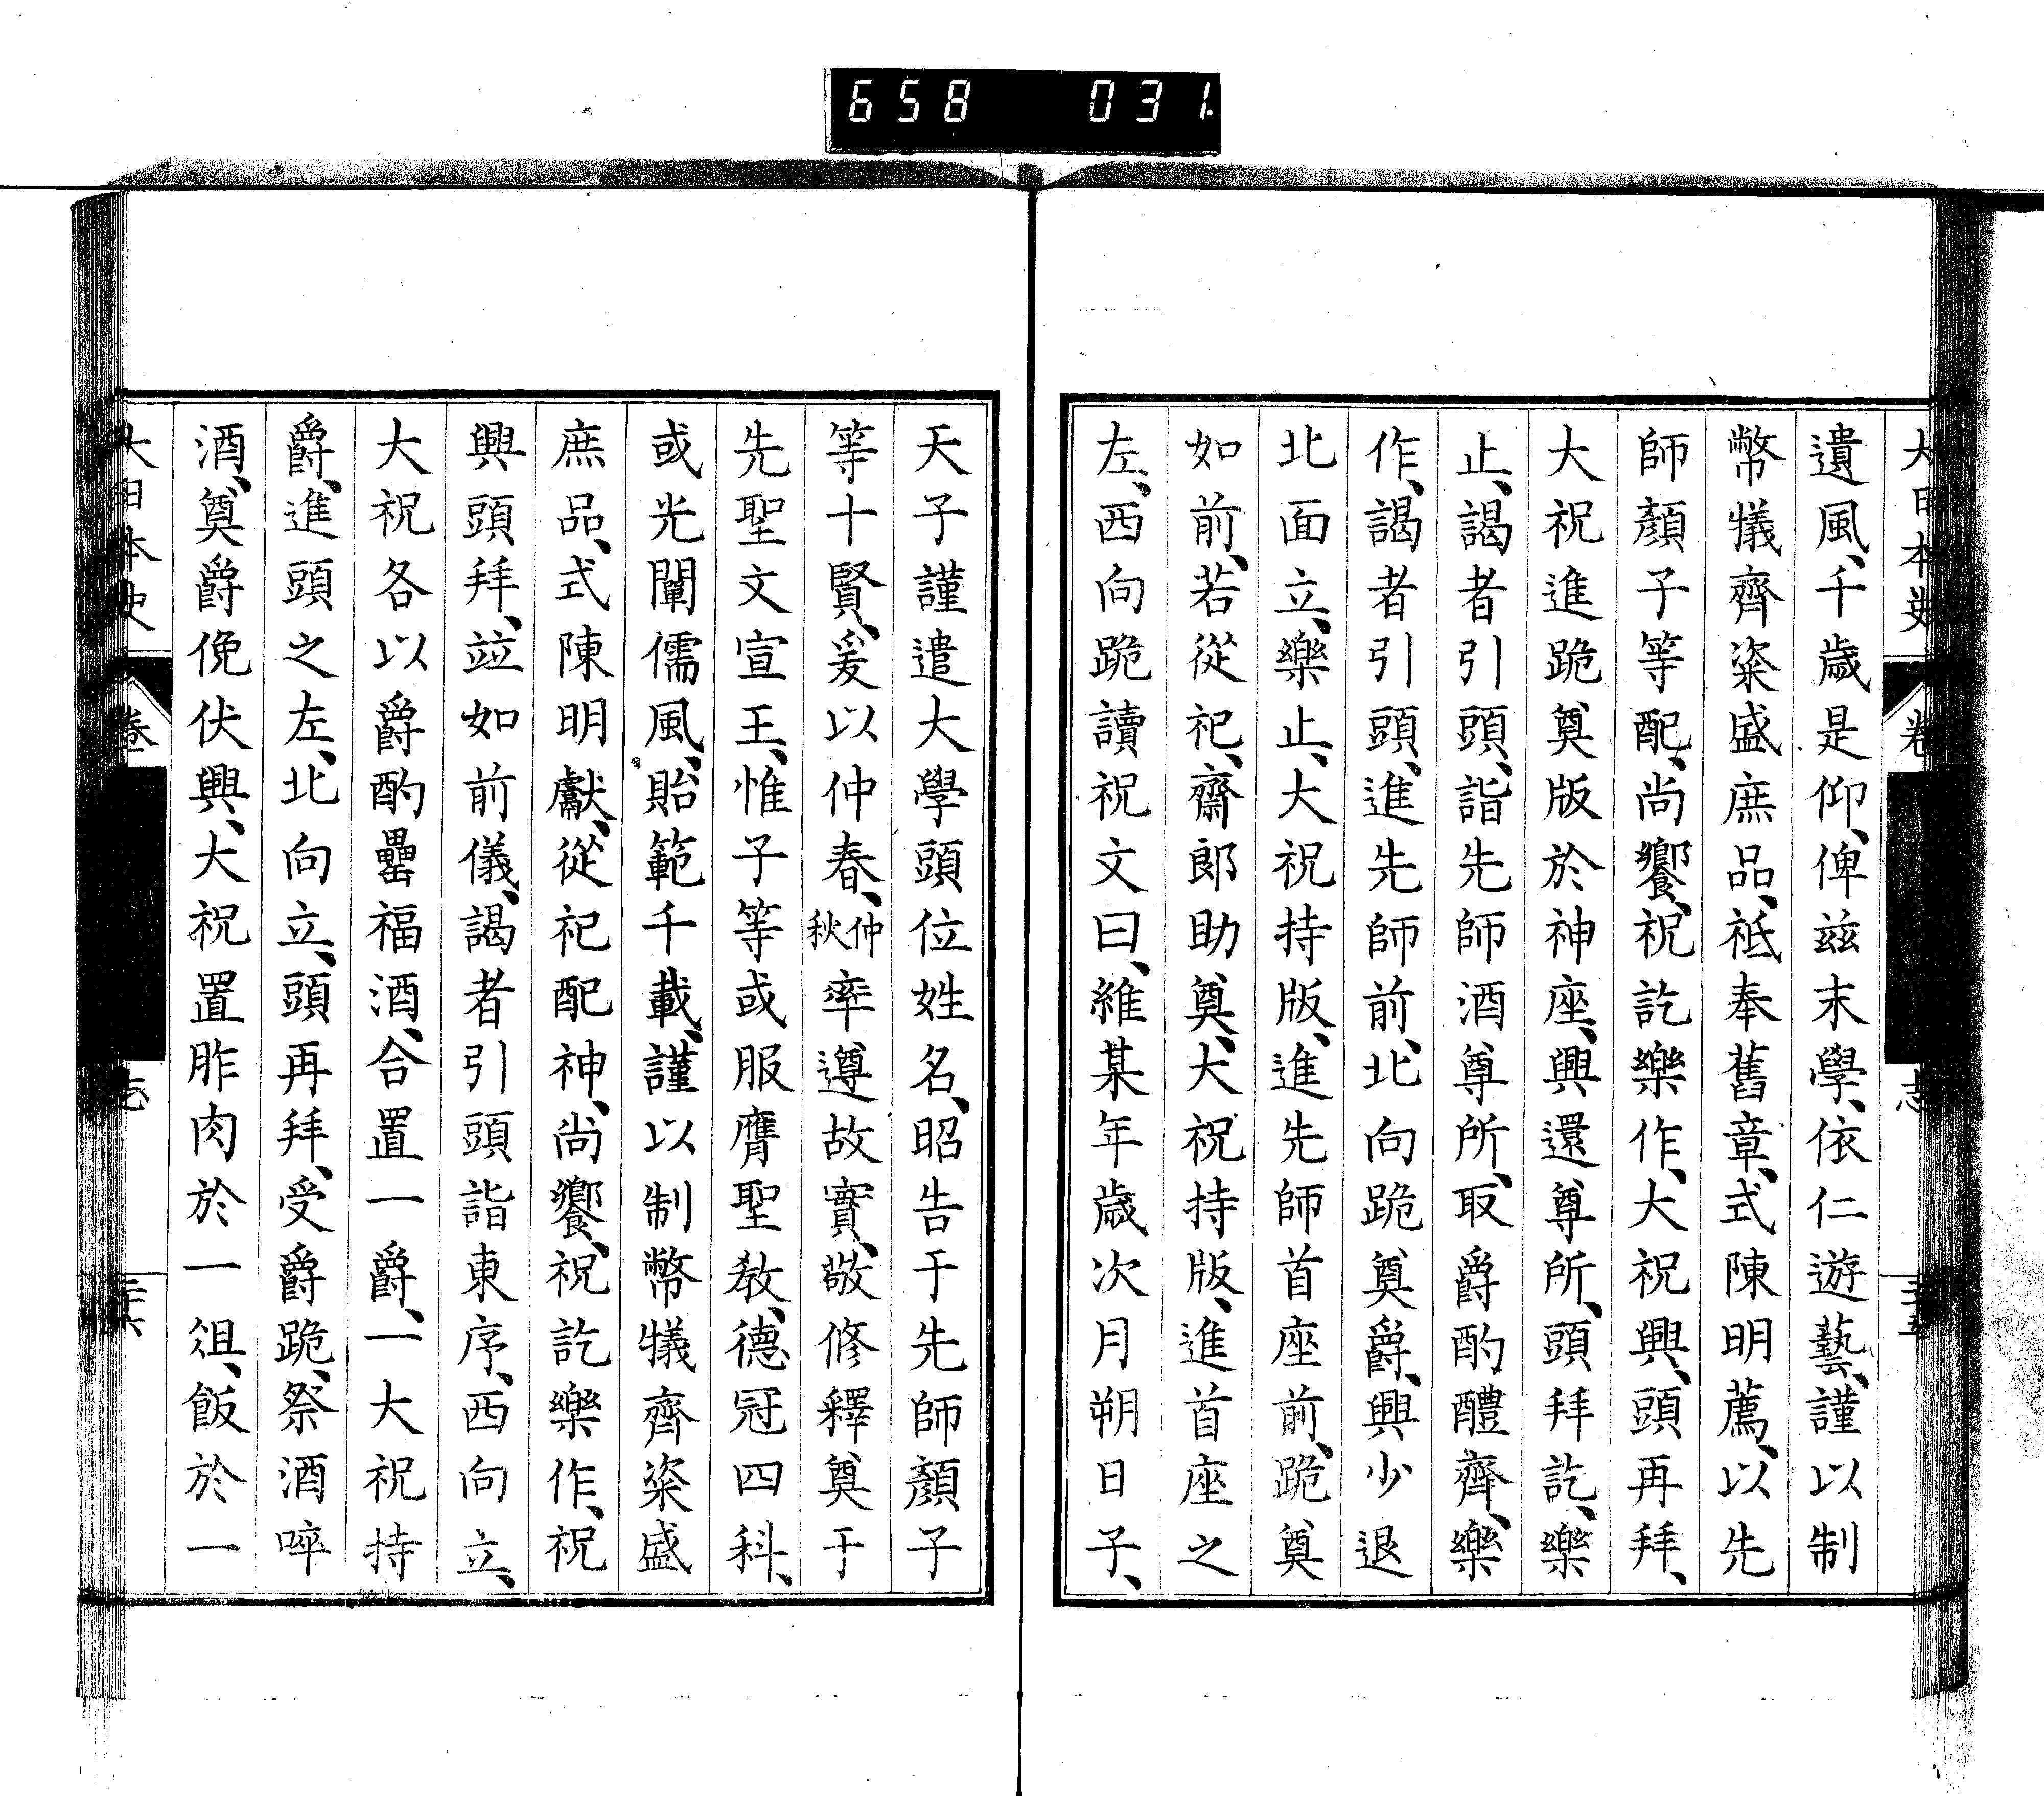 658 031
大日本史 卷 志 二十五
遺風、千歳是仰、俾玆末學、依仁遊藝、謹以制
幣犠齊粢盛庶品、祗奉舊章、式陳明薦、以先
師顏子等配、尚饗、祝訖樂作、大祝興、頭再拜、
大祝進跪奠版於神座、興還尊所、頭拜訖、樂
止、謁者引頭、詣先師酒尊所、取爵酌醴齊、樂
作、謁者引頭、進先師前、北向跪奠爵、興少退
北面立、樂止、大祝持版、進先師首座前、跪奠
如前、若從祀、齋郎助奠、大祝持版、進首座之
左、西向跪讀祝文曰、維某年歳次月朔日子、
天子謹遣大學頭位姓名、昭告于先師顏子
等十賢、爰以仲春、仲秋率遵故實、敬修釋奠于
先聖文宣王、惟子等或服膺聖敎、德冠四科、
或光闡儒風、貽範千載、謹以制幣犠齊粢盛
庶品、式陳明獻、從祀配神、尚饗、祝訖樂作、祝
興頭拜、竝如前儀、謁者引頭詣東序、西向立、
大祝各以爵酌罍福酒、合置一爵、一大祝持
爵、進頭之左、北向立、頭再拜、受爵跪、祭酒啐
酒、奠爵俛伏興、大祝置胙肉於一俎、飯於一
大日本史 卷 志 二十六